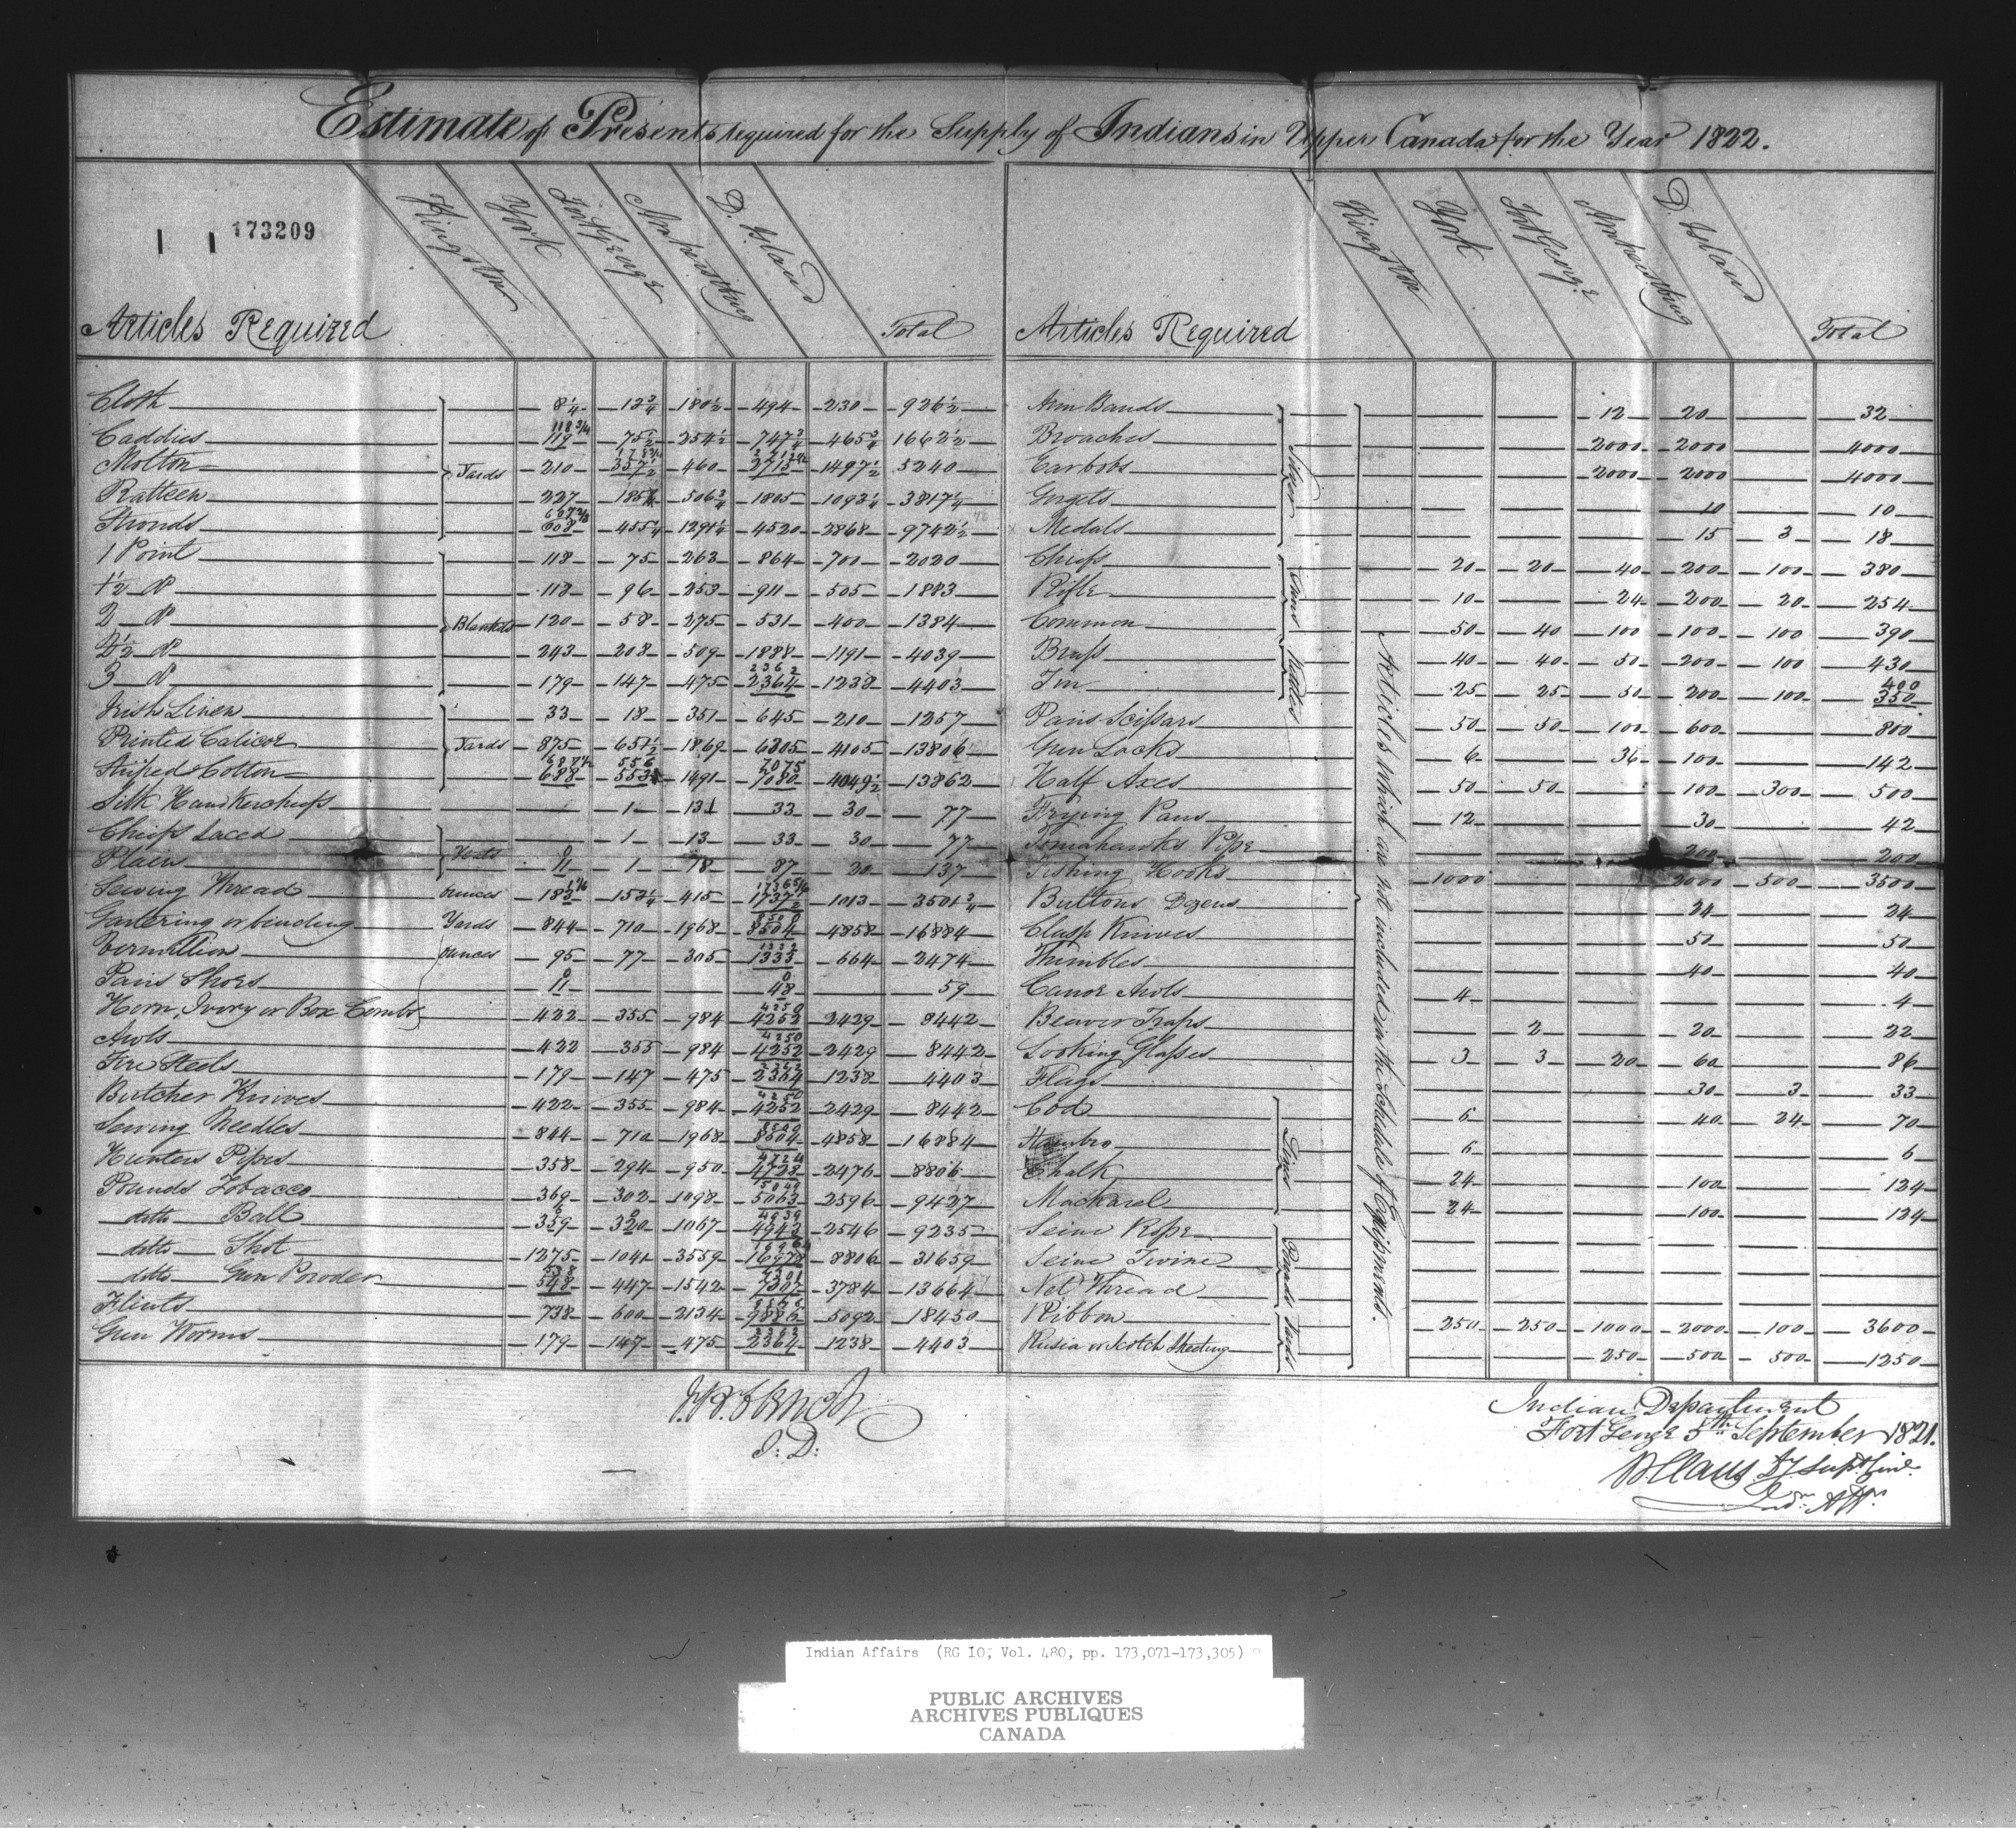 Estimate of Presents required for the Supply of Indians in Upper Canada for the Year 1822.
173209
Articles Required Kingston York Fort George Amherstburg D. Island Total
Cloth 8 1/4 13 3/4 180 1/2 494 230 926 1/2
Caddies 118 3/4 119 75 1/2 254 1/2 747 3/4 465 3/4 1662 1/2
Molton Yards 210 357 1/2 460 2715 1497 1/2 5240
Ratteen 227 185 506 3/4 1805 1093 1/4 3817 1/4
Strouds 608 455 1/4 1291 1/4 4520 2868 9742 1/2
1 Point 118 75 263 864 700 2020
1 1/2 do 118 96 253 911 505 1883
2 do Blankets 120 58 275 531 400 1384
2 1/2 do 243 208 509 1888 1191 4039
3 do 179 147 475 2362 2364 1238 4403
Irish Linen 33 18 351 645 210 1257
Printed Calicoe Yards 875 651 1/2 1869 6305 4105 13806
Striped Cotton 687 1/2 688 556 553 1491 7075 7080 4049 1/2 13862
Silk Handkerchiefs 1 13 33 30 77
Chiefs Laced 1 13 33 30 77
Plain Hats 11 1 18 87 20 137
Sewing Thread ounces 183 153 1/4 415 1737 1/2 1013 3501 3/4
Gartering or binding Yards 844 710 1968 8500 8504 4858 16884
Vermillion ounces 95 77 305 1333 664 2474
Pairs Shoes 11 48 59
Horn, Ivory or Box Combs 422 355 984 4250 4252 2429 8442
Awls 422 355 984 4250 4252 2429 8442
Fire Steels 179 147 475 2364 1238 4403
Butcher Knives 422 355 984 4250 4252 2429 8442
Sewing Needles 844 710 1968 8500 8504 4858 16884
Hunters Pipes 358 294 950 4724 4728 2476 8806
Pounds Tobacco 369 302 1098 5063 2596 9427
ditto Ball 359 320 1067 4939 4943 2546 9235
ditto Shot 1275 1041 3559 16978 8806 31659
ditto Gun Powder 538 548 447 1542 7301 7307 3784 13664
Flints 738 600 2134 9886 5092 18450
Gun Worms 179 147 475 2364 1238 4403
J.B. Clench
I: D:
Articles Required Kingston York Fort George Amherstburg D. Island Total
Articles which are not included in the Schedule of Equipments.
Arm Bands 12 20 32
Broaches 2000 2000 4000
Earbobs Silver 2000 2000 4000
Gorgets 10 10
Medals 15 3 18
Chiefs 20 20 40 200 100 380
Rifle Guns 10 24 200 20 254
Common 50 40 100 100 100 390
Brass Kettles 40 40 50 200 100 430
Tin 25 25 50 200 100 400 350
Pairs Scissars 50 50 100 600 800
Gun Locks 6 36 100 142
Half Axes 50 50 100 300 500
Frying Pans 12 30 42
Tomahawks Pipe 200 200
Fishing Hooks 1000 2000 500 3500
Buttons Dozens 24 24
Clasp Knives 50 50
Thimbles 40 40
Canoe Awls 4 4
Beaver Traps 2 20 22
Looking Glasses 3 3 20 60 86
Flags 30 3 33
Cod 6 40 24 70
Hambro Lines 6 6
Chalk 24 100 124
Mackarel 24 100 124
Seine Rope
Seine Twine Pounds
Net Thread
Ribbon Yards 250 250 1000 2000 100 3600
Rusia or Scotch Sheeting 250 500 500 1250
Indian Department
Fort George 5th September 1821.
W Claus Dy Supt Genl.
Indn. Affrs.
Indian Affairs (RG 10, Vol. 480, pp. 173,071-173,305)
PUBLIC ARCHIVES
ARCHIVES PUBLIQUES
CANADA